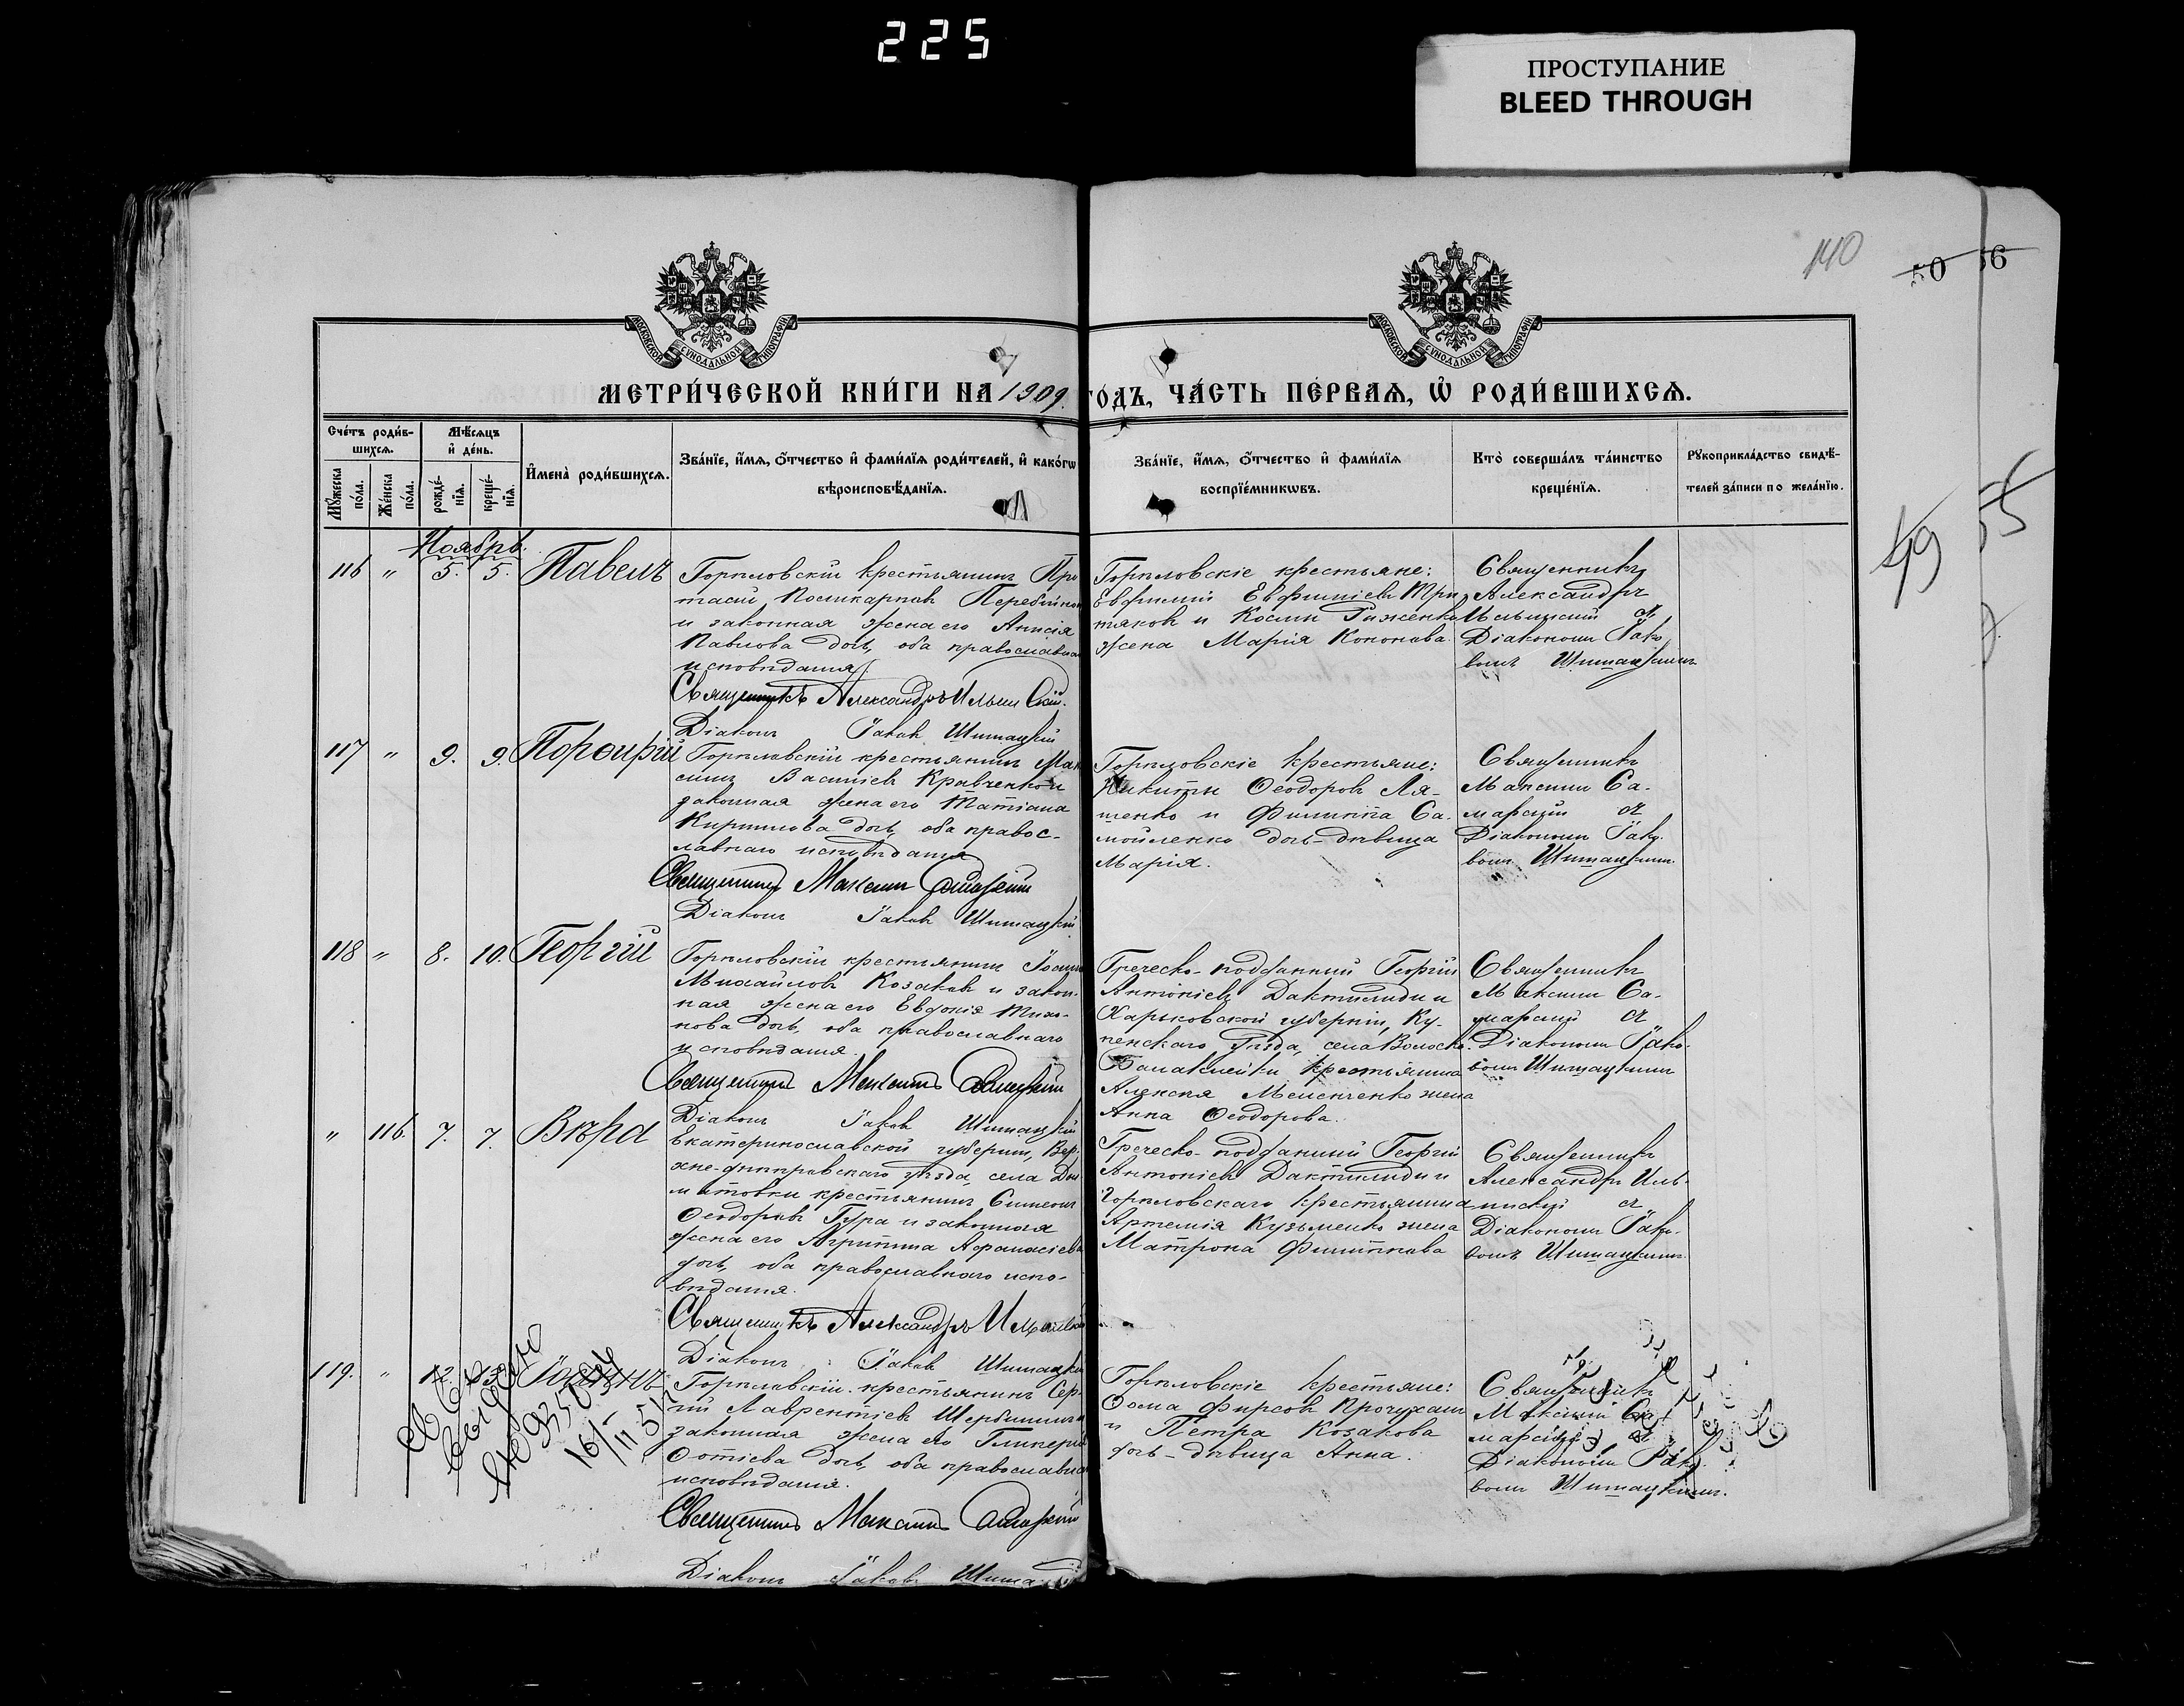 225
ПРОСТУПАНИЕ
BLEED THROUGH
140
50 56
49 55
МОСКОВСКОЙ СѴНОДАЛЬНОЙ ТИПОГРАФІИ
МОСКОВСКОЙ СѴНОДАЛЬНОЙ ТИПОГРАФІИ
МЕТРИ́ЧЕСКОЙ КНИ́ГИ НА 1909 ГО́ДЪ, ЧА́СТЬ ПЕ́РВАЯ, Ѡ҆ РОДИ́ВШИХСЯ.
Сче́тъ роди́в-
шихся.
Мꙋжеска по́ла.
Же́нска по́ла.
Мѣ́сяцъ
и҆ де́нь.
рожде́-
нїя.
креще́-
нїя.
И҆мена̀ роди́вшихся.
Зва́нїе, и҆́мя, ѻ҆́тчество и҆ фами́лїя роди́телей, и҆ како́гѡ
вѣроисповѣ́данїя.
Зва́нїе, и҆́мя, ѻ҆́тчество и҆ фами́лїя
воспрїе́мникѡвъ.
Кто̀ соверша́лъ та́инство
креще́нїя.
Рꙋкоприкла́дство свидѣ́-
телей за́писи по жела́нїю.
Ноябрь.
116 " 5. 5. Павелъ
Горловскій крестьянинъ Про
тасій Поликарповъ
и законная жена его Анисія
Павлова дочь, оба православнаго
исповѣданія
Священникъ Александръ Ильинскій.
Діаконъ Іаковъ Шишацкій
Горловскіе крестьяне:
Евфимій Евфиміевъ Три
тяковъ и Космы
жена Марія Кононова.
Священникъ
Александръ
Ильинскій съ
Діакономъ Іако
вомъ Шишацкимъ
117 " 9. 9. Порфирій
Горловскій крестьянинъ Мак
симъ Васильевъ Кравченко и
законная жена его Татіана
Кириллова дочь, оба правос-
лавнаго исповѣданія
Священникъ Максимъ Самарскій
Діаконъ Іаковъ Шишацкій
Горловскіе крестьяне:
Никита Ѳеодоровъ Ля-
шенко и Филиппа Са-
мойленко дочь-дѣвица
Марія.
Священникъ
Максимъ Са-
марскій съ
Діакономъ Іако-
вомъ Шишацкимъ.
118 " 8. 10. Георгій
Горловскій крестьянинъ Іоаннъ
Михайловъ Козаковъ и закон-
ная жена его Евдокія Тихо-
нова дочь, оба православнаго
исповѣданія.
Священникъ Максимъ Самарскій
Діаконъ Іаковъ Шишацкій
Греческо-подданный Георгій
Антоніевъ Дактилиди и
Харьковской губерніи, Ку-
пенскаго уѣзда, села Волоско-
Балаклейки крестьянина
Алексія жена
Анна Ѳеодорова.
Священникъ
Максимъ Са-
марскій съ
Діакономъ Іако-
вомъ Шишацкимъ
" 116. 7. 7. Вѣра
Екатеринославской губерніи, Вер-
хне-днѣпровскаго уѣзда, села До
мотовки крестьянинъ Симеонъ
Ѳеодоровъ Гура и законная
жена его Агриппина Аѳанасіева
дочь, оба православнаго испо-
вѣданія.
Священникъ Александръ Ильинскій
Діаконъ Іаковъ Шишацкій
Греческо-подданный Георгій
Антоніевъ Дактилиди и
Горловскаго крестьянина
Артемія Кузьменко жена
Матрона Филиппова
Священникъ
Александръ Иль-
инскій съ
Діакономъ Іако-
вомъ Шишацкимъ.
119. " 12. 13. Іоаннъ
Горловскій крестьянинъ Сер-
гій Лаврентіевъ Щербининъ и
законная жена его Гликерія
Фотіева дочь, оба православнаго
исповѣданія.
Священникъ Максимъ Самарскій
Діаконъ Іаковъ
Горловскіе крестьяне:
Ѳома Фирсовъ
и Петра Козакова
дочь-дѣвица Анна.
Священникъ
Максимъ Са-
марскій съ
Діакономъ Іако-
вомъ Шишацкимъ.
выдано